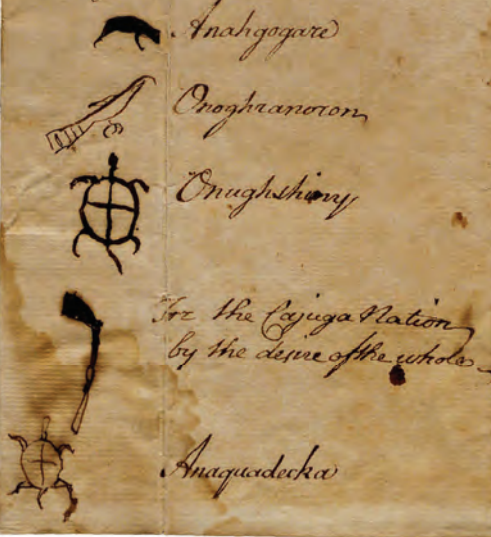 Anahgogare
Onoghranoron
Onughshiny
For the Cajuga Nation
by the desire of the whole
Anaquadecka